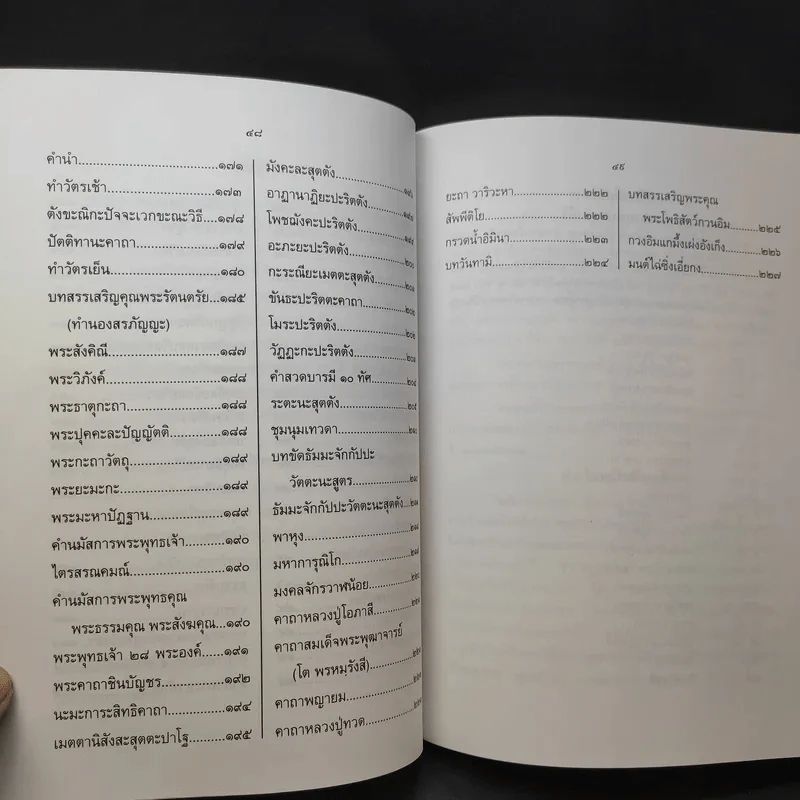 ๔๘
คำนำ...๑๗๑
ทำวัตรเช้า...๑๗๓
ตังขะณิกะปัจจะเวกขะณะวิธี...๑๗๘
ปัตติทานะคาถา...๑๗๙
ทำวัตรเย็น...๑๘๐
บทสรรเสริญคุณพระรัตนตรัย...๑๘๕
(ทำนองสรภัญญะ)
พระสังคิณี...๑๘๗
พระวิภังค์...๑๘๘
พระธาตุกะถา...๑๘๘
พระปุคคะละปัญญัตติ...๑๘๘
พระกะถาวัตถุ...๑๘๙
พระยะมะกะ...๑๘๙
พระมะหาปัฏฐาน...๑๘๙
คำนมัสการพระพุทธเจ้า...๑๙๐
ไตรสรณคมณ์...๑๙๐
คำนมัสการพระพุทธคุณ
พระธรรมคุณ พระสังฆคุณ...๑๙๐
พระพุทธเจ้า ๒๘ พระองค์...๑๙๑
พระคาถาชินบัญชร...๑๙๒
นะมะการะสิทธิคาถา...๑๙๔
เมตตานิสังสะสุตตะปาโฐ...๑๙๕
มังคะละสุตตัง...
อาฏานาฏิยะปะริตตัง...
โพชฌังคะปะริตตัง...
อะภะยะปะริตตัง...
กะระณียะเมตตะสุตตัง...
ขันธะปะริตตะคาถา...
โมระปะริตตัง...
วัฏฏะกะปะริตตัง...
คำสวดบารมี ๑๐ ทัศ...
ระตะนะสุตตัง...
ชุมนุมเทวดา...
บทขัดธัมมะจักกัปปะ
วัตตะนะสูตร...
ธัมมะจักกัปปะวัตตะนะสุตตัง...
พาหุง...
มหาการุณิโก...
มงคลจักรวาฬน้อย...
คาถาหลวงปู่โอภาสี...
คาถาสมเด็จพระพุฒาจารย์
(โต พรหมฺรังสี)...
คาถาพญายม...
คาถาหลวงปู่ทวด...
๔๙
ยะถา วาริวะหา...๒๒๒
สัพพีติโย...๒๒๒
กรวดน้ำอิมินา...๒๒๓
บทวันทามิ...๒๒๔
บทสรรเสริญพระคุณ
พระโพธิสัตว์กวนอิม...๒๒๕
กวงอิมแกมึ้งเผ่งอังเก็ง...๒๒๖
มนต์ไฉ่ซิ่งเอี๊ยกง...๒๒๗